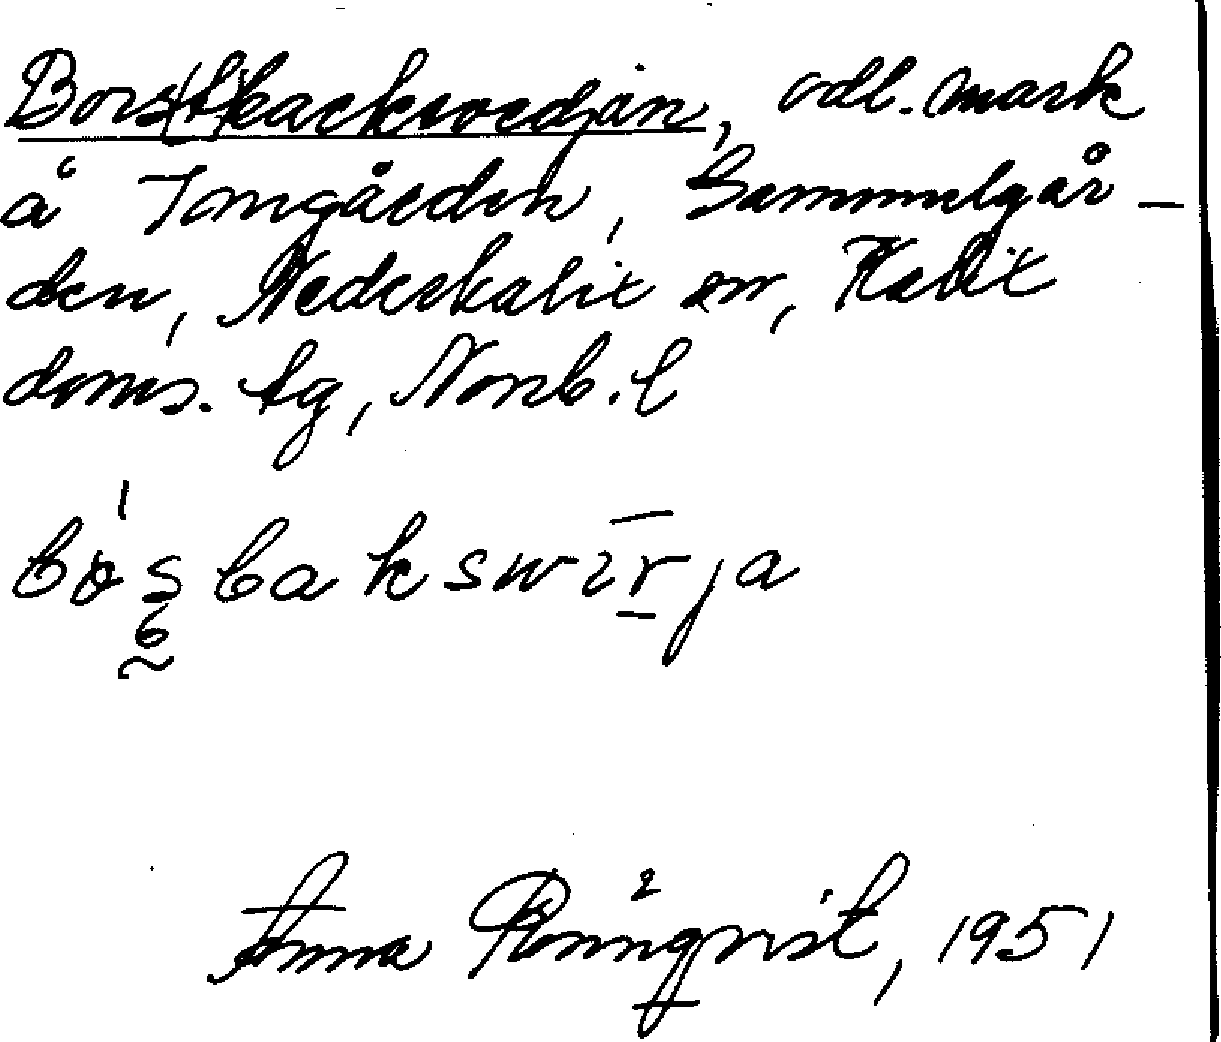 Bors(t)backsvedjan, odl. mark
å Tomgården, Gammelgår-
den, Nederkalix sn, Kalix
doms. tg, Norrb. l
bosbakswirja
Anna Rönnqvist, 1951